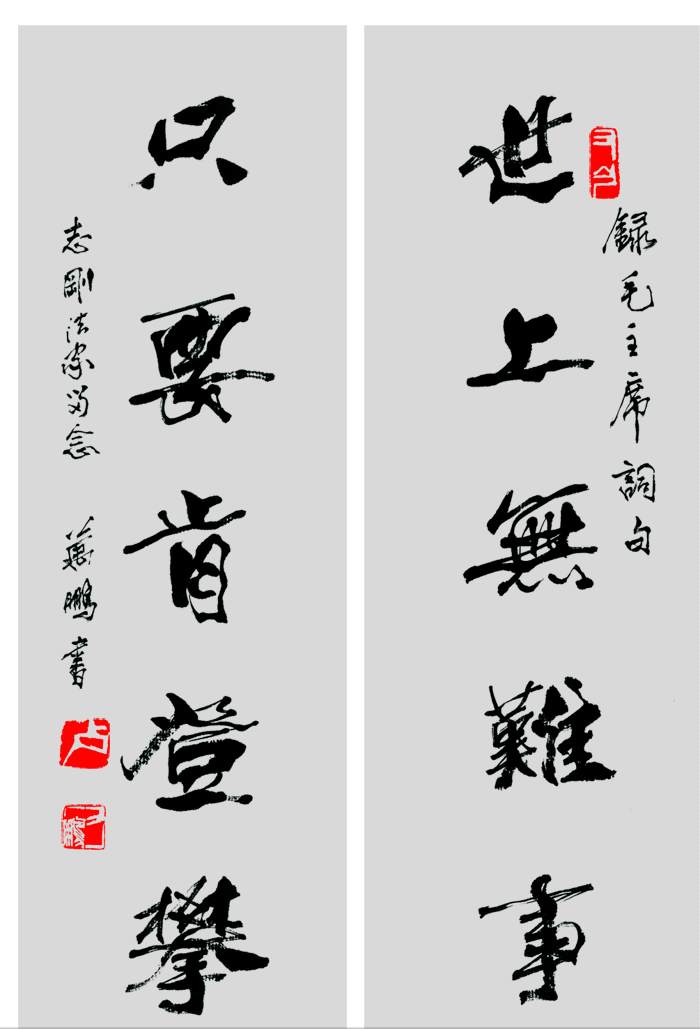 錄毛主席詞句
世上無難事
只要肯登攀
志剛法家留念
鵬書